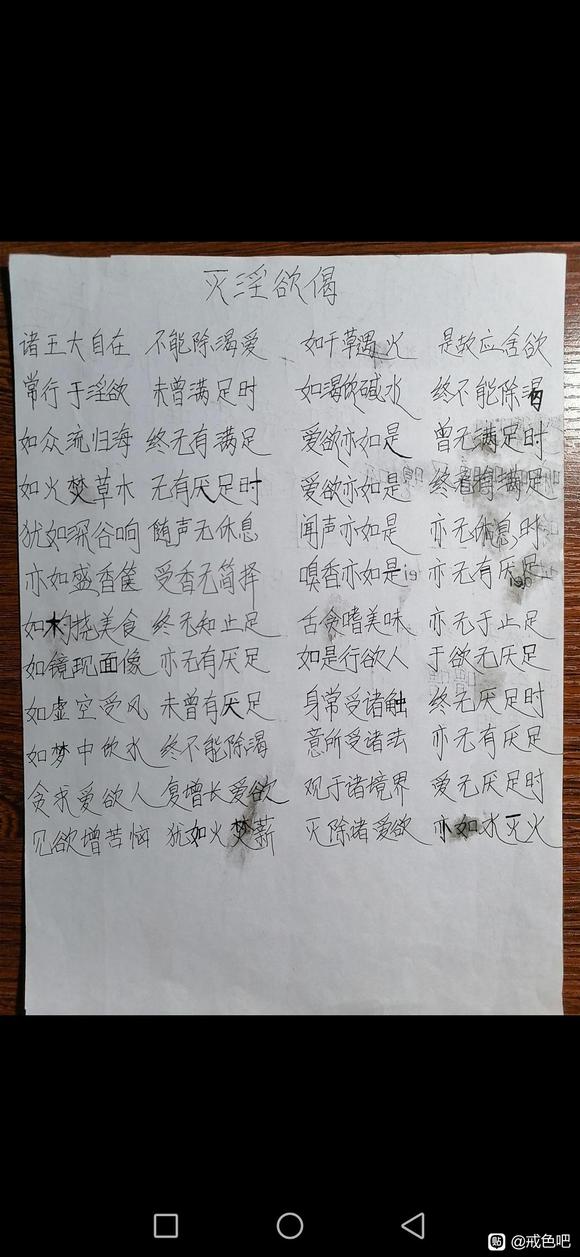 灭淫欲偈
诸王大自在 不能除渴爱 如干草遇火 是故应舍欲
常行于淫欲 未曾满足时 如渴饮碱水 终不能除渴
如众流归海 终无有满足 爱欲亦如是 曾无满足时
如火焚草木 无有厌足时 爱欲亦如是 终着有满足
犹如深谷响 随声无休息 闻声亦如是 亦无休息时
亦如盛香箧 受香无简择 嗅香亦如是 亦无有厌足
如杓挠美食 终无知止足 舌贪嗜美味 亦无于止足
如镜现面像 亦无有厌足 如是行欲人 于欲无厌足
如虚空受风 未曾有厌足 身常受诸触 终无厌足时
如梦中饮水 终不能除渴 意所受诸法 亦无有厌足
贪求爱欲人 复增长爱欲 观于诸境界 爱无厌足时
见欲增苦恼 犹如火焚薪 灭除诸爱欲 亦如水灭火
贴 @戒色吧